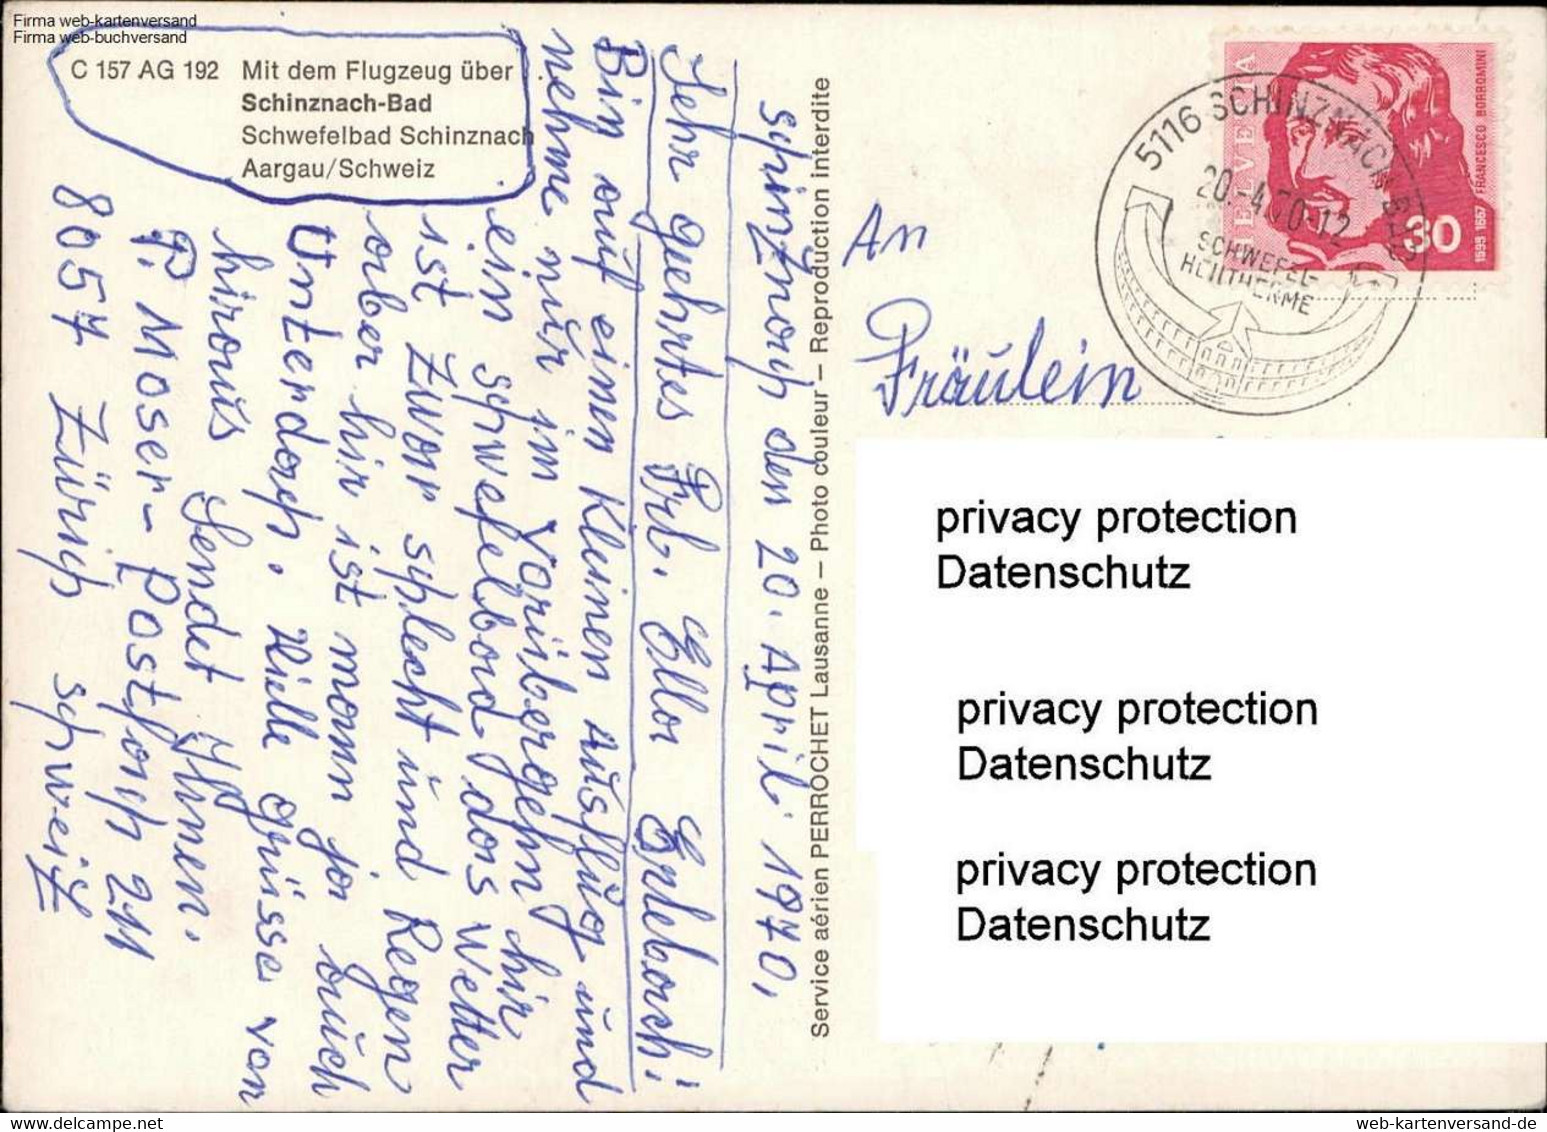 Firma web-kartenversand
Firma web-buchversand
C 157 AG 192 Mit dem Flugzeug über
Schinznach-Bad
Schwefelbad Schinznach
Aargau/Schweiz
Schinznach den 20. April 1970,
Sehr geehrtes Frl. Ella Erlebach!
Bin auf einen Kleinen Ausflug und
nehme nur im Vorübergehn hir
ein Schwefelbad das Wetter
ist zwar schlecht und Regen
aber hir ist mann ja auch
Unterdach. Vielle grüsse von
hiraus Sendet Ihnen.
P. Moser-Postfach 211
8057 Zürich Schweiz
Service aérien PERROCHET Lausanne – Photo couleur – Reproduction interdite
HELVETIA
30
FRANCESCO BORROMINI
1599 1667
5116 SCHINZNACH BAD
20.-4.70-12
SCHWEFEL-
HEILTHERME
An
Fräulein
privacy protection
Datenschutz
privacy protection
Datenschutz
privacy protection
Datenschutz
web-kartenversand-de